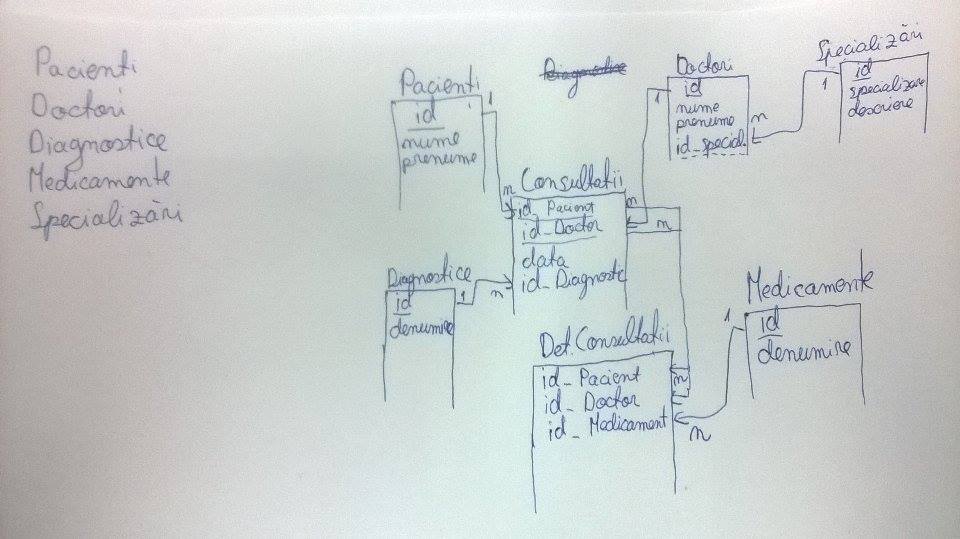 Pacienti
Doctori
Diagnostice
Medicamente
Specializări
Pacienti
id
nume
prenume
1
Diagnostice
Doctori
id
nume
prenume
id_special.
1
n
Specializări
id
specializare
descriere
1
Consultatii
id_Pacient
id_Doctor
data
id_Diagnostic
n
n
n
n
Diagnostice
id
denumire
1
Det.Consultatii
id_Pacient
id_Doctor
id_Medicament
n
n
Medicamente
id
denumire
1